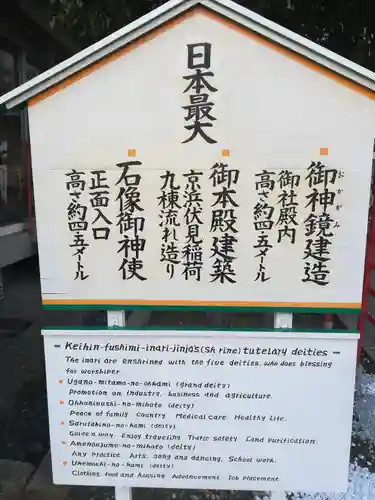 日本最大
御神鏡建造
おかがみ
御社殿内
高さ約四・五メートル
御本殿建築
京浜伏見稲荷
九棟流れ造り
石像御神使
正面入口
高さ約四・五メートル
Keihin-fushimi-inari-jinja's (Shrine) tutelary deities
The inari are enshrined with the five deities, who does blessing
for worshiper
Ugano-mitama-no-ohkami (grand deity)
Promotion on industry, business and agriculture.
Ohkuninushi-no-mikoto (deity)
Peace of family Country Medical care. Healthy Life.
Sarutahiko-no-kami (deity)
Guide a way. Enjoy traveling Trafic safety Land Purification.
(deity)
Any Practice Arts, Song ang dancing, School work.
Ukemochi-no-kami (deity)
Clothing, Food and Housing Advancement Job Placement